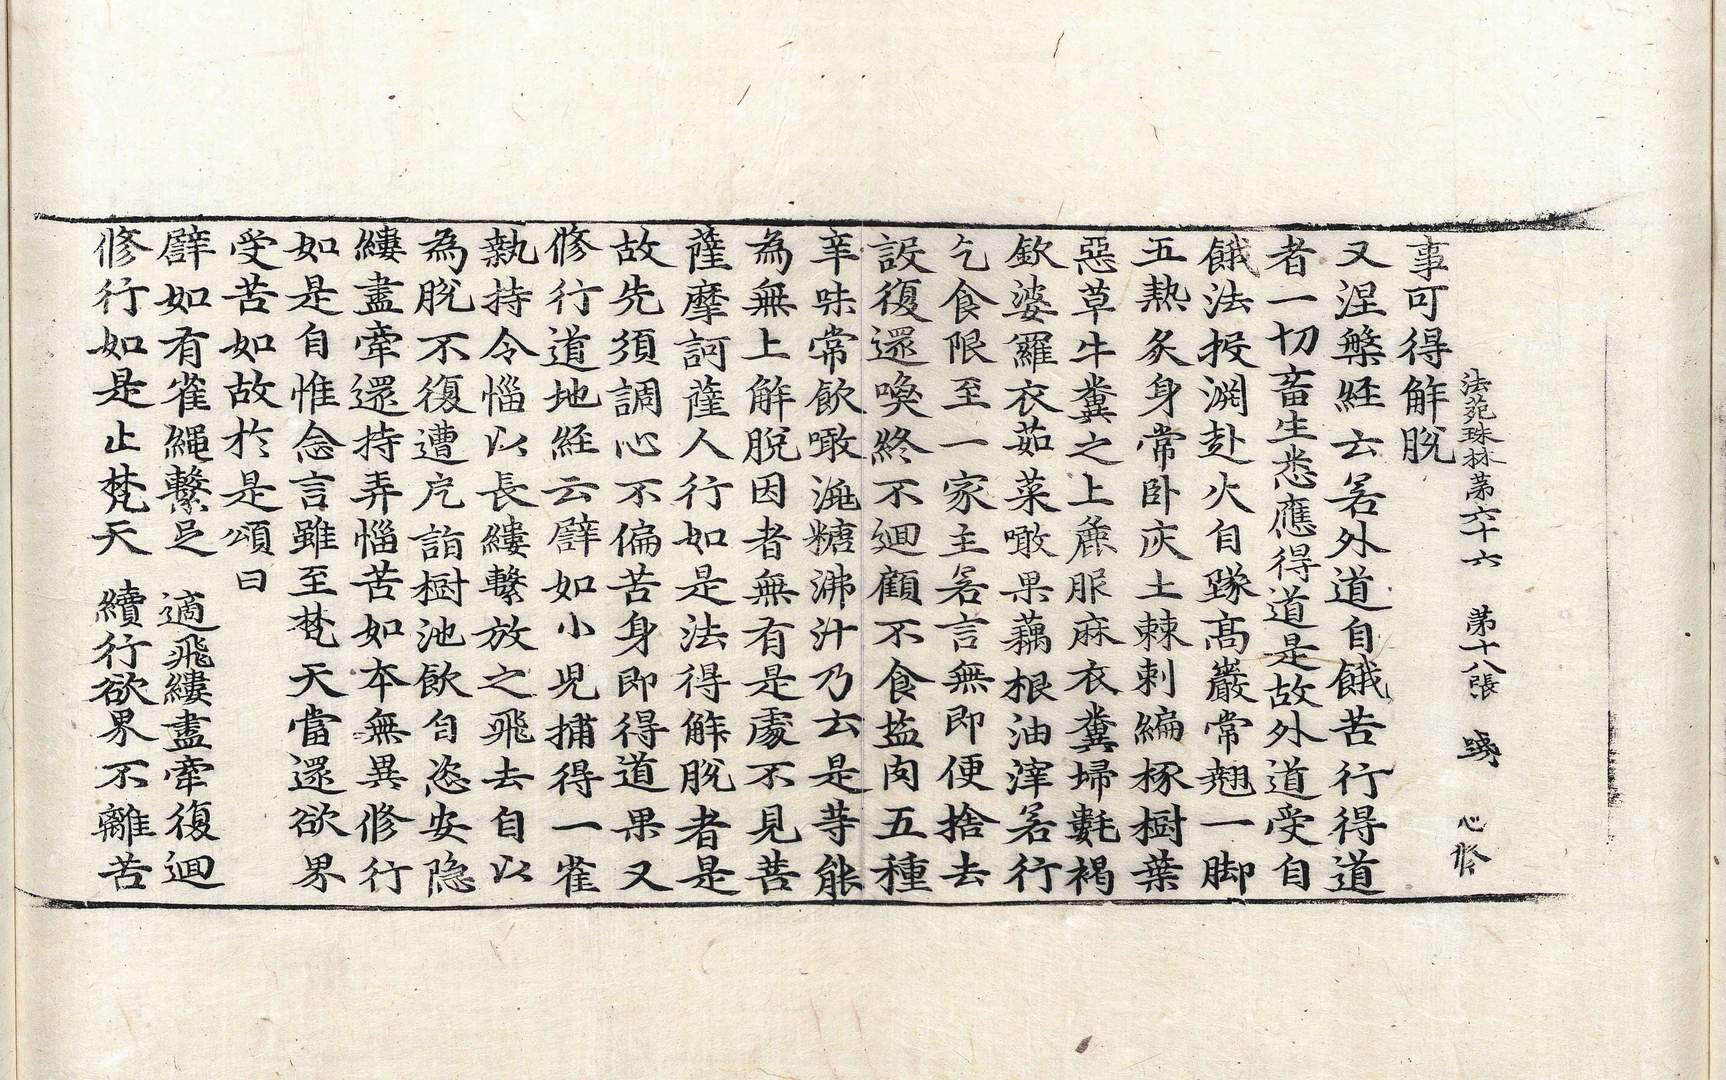 法苑珠林第六十六 第十八張 心修
事可得解脫
又涅槃経云若外道自餓苦行得道
者一切畜生悉應得道是故外道受自
餓法投淵赴火自墜髙巖常翹一脚
五熱炙身常卧灰土棘刺編椓樹葉
惡草牛糞之上麁服麻衣糞埽氀褐
欽婆羅衣茹菜噉果藕根油滓若行
乞食限至一家主若言無即便捨去
設復還喚終不迴顧不食盐肉五種
辛味常飲噉洮糖沸汁乃云是等能
為無上解脫因者無有是處不見菩
薩摩訶薩人行如是法得解脫者是
故先須調心不偏苦身即得道果又
修行道地経云譬如小兒捕得一雀
執持令惱以長縷繫放之飛去自以
為脫不復遭厄詣樹池飲自恣安隐
縷盡牽還持弄惱苦如本無異修行
如是自惟念言雖至梵天當還欲界
受苦如故於是頌曰
譬如有雀繩繫足 適飛縷盡牽復迴
修行如是止梵天 續行欲界不離苦